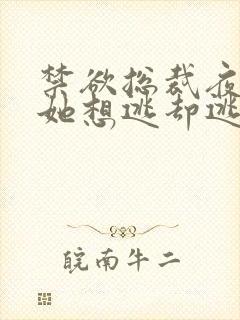 禁欲总裁夜
她想逃却逃
皖南牛二